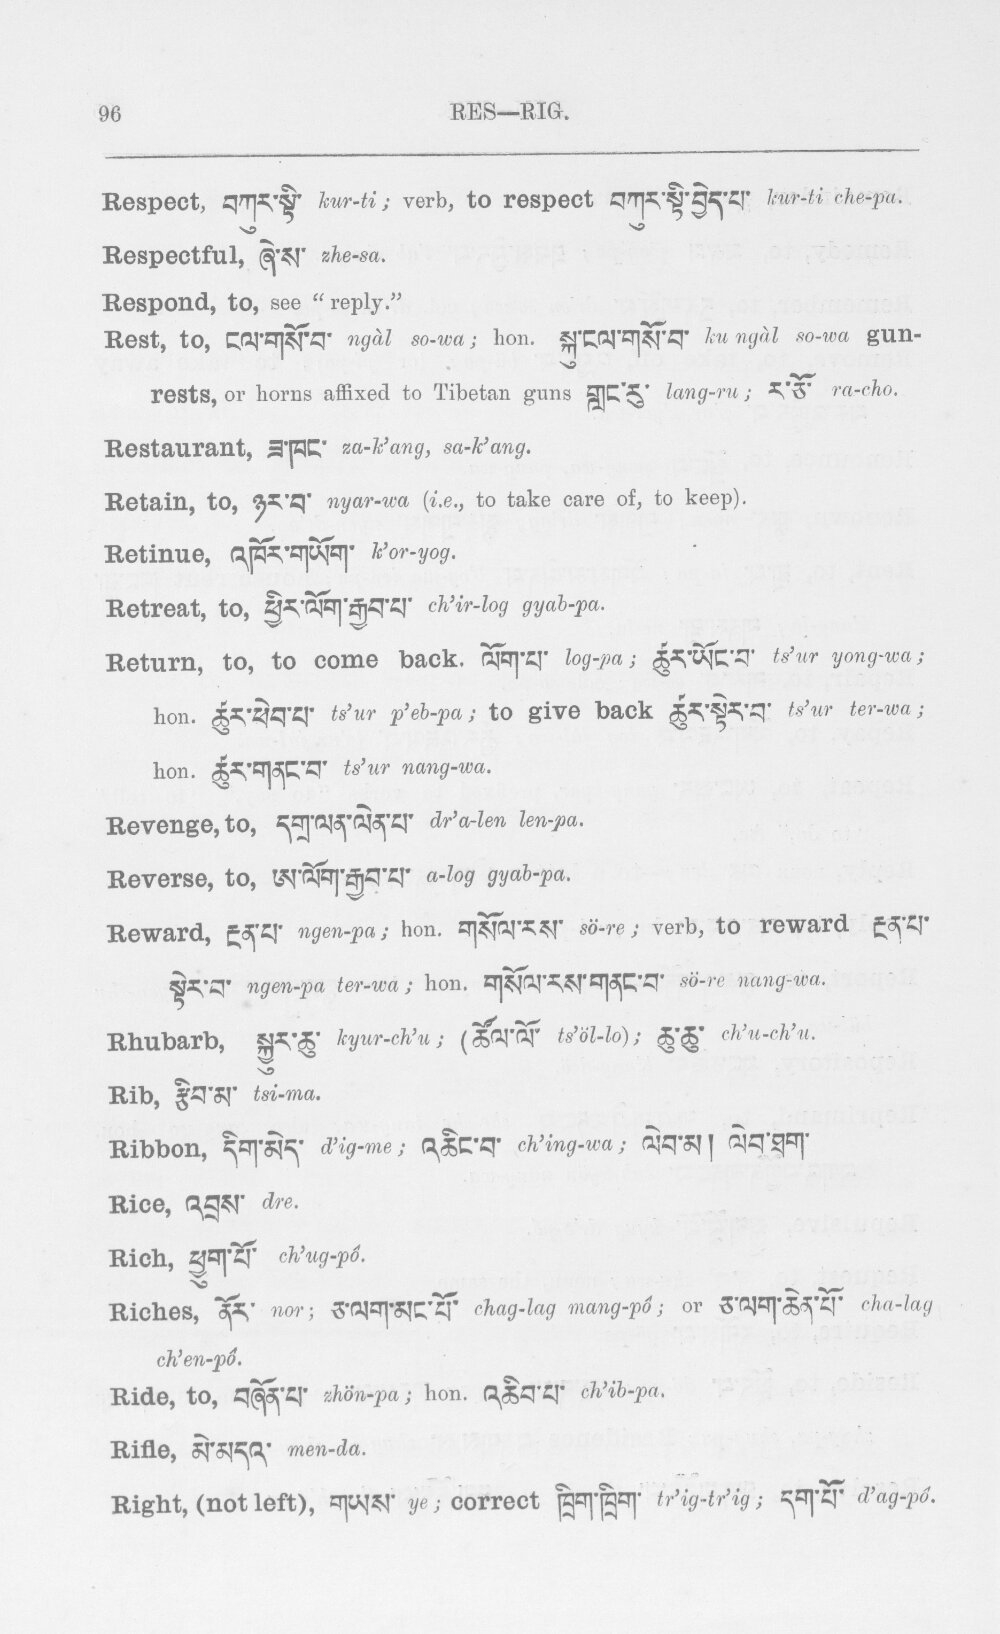 96
RES—RIG.
Respect, བཀུར་སྟི་ kur-ti; verb, to respect བཀུར་སྟི་བྱེད་པ་ kur-ti che-pa.
Respectful, ཞེ་ས་ zhe-sa.
Respond, to, see “reply.”
Rest, to, ངལ་གསོ་བ་ ngàl so-wa; hon. སྐུ་ངལ་གསོ་བ་ ku ngàl so-wa gun-
rests, or horns affixed to Tibetan guns གླང་རུ་ lang-ru; ར་ཅོ་ ra-cho.
Restaurant, ཟ་ཁང་ za-k’ang, sa-k’ang.
Retain, to, ཉར་བ་ nyar-wa (i.e., to take care of, to keep).
Retinue, འཁོར་གཡོག་ k’or-yog.
Retreat, to, ཕྱིར་ལོག་རྒྱབ་པ་ ch’ir-log gyab-pa.
Return, to, to come back. ལོག་པ་ log-pa; ཚུར་ཡོང་བ་ ts’ur yong-wa;
hon. ཚུར་ཕེབ་པ་ ts’ur p’eb-pa; to give back ཚུར་སྟེར་བ་ ts’ur ter-wa;
hon. ཚུར་གནང་བ་ ts’ur nang-wa.
Revenge, to, དགྲ་ལན་ལེན་པ་ dr’a-len len-pa.
Reverse, to, ཨ་ལོག་རྒྱབ་པ་ a-log gyab-pa.
Reward, རྔན་པ་ ngen-pa; hon. གསོལ་རས་ sö-re; verb, to reward རྔན་པ་
སྟེར་བ་ ngen-pa ter-wa; hon. གསོལ་རས་གནང་བ་ sö-re nang-wa.
Rhubarb, སྐྱུར་ཆུ་ kyur-ch’u; (ཚོལ་ལོ་ ts’öl-lo); ཆུ་ཆུ་ ch’u-ch’u.
Rib, རྩིབ་མ་ tsi-ma.
Ribbon, དིག་མེད་ d’ig-me; འཆིང་བ་ ch’ing-wa; ལེབ་མ། ལེབ་ཐག་
Rice, འབྲས་ dre.
Rich, ཕྱུག་པོ་ ch’ug-pó.
Riches, ནོར་ nor; ཅ་ལག་མང་པོ་ chag-lag mang-pó; or ཅ་ལག་ཆེན་པོ་ cha-lag
ch’en-pó.
Ride, to, བཞོན་པ་ zhön-pa; hon. འཆིབ་པ་ ch’ib-pa.
Rifle, མེ་མདའ་ men-da.
Right, (not left), གཡས་ ye; correct ཁྲིག་ཁྲིག་ tr’ig-tr’ig; དག་པོ་ d’ag-pó.